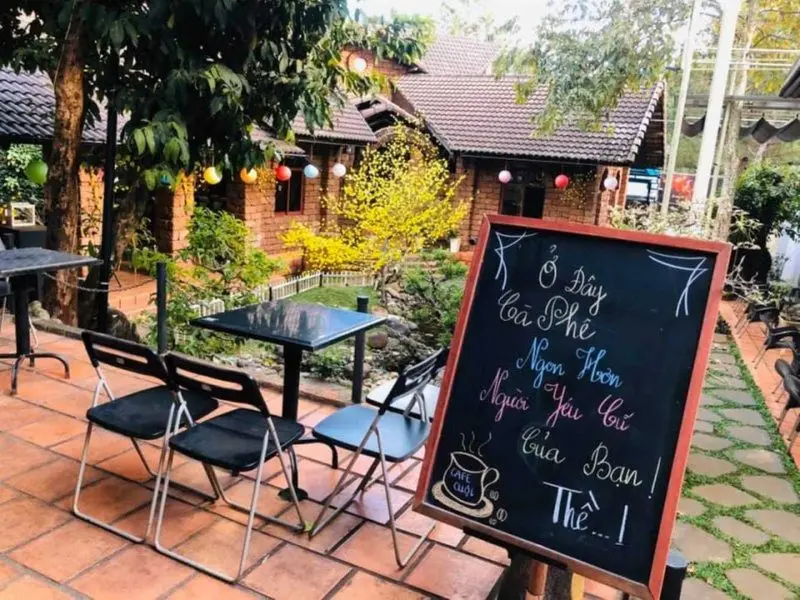 Ở Đây
Cà Phê
Ngon Hơn
Người Yêu Cũ
Của Bạn !
Thề...!
CAFE
CUỘI